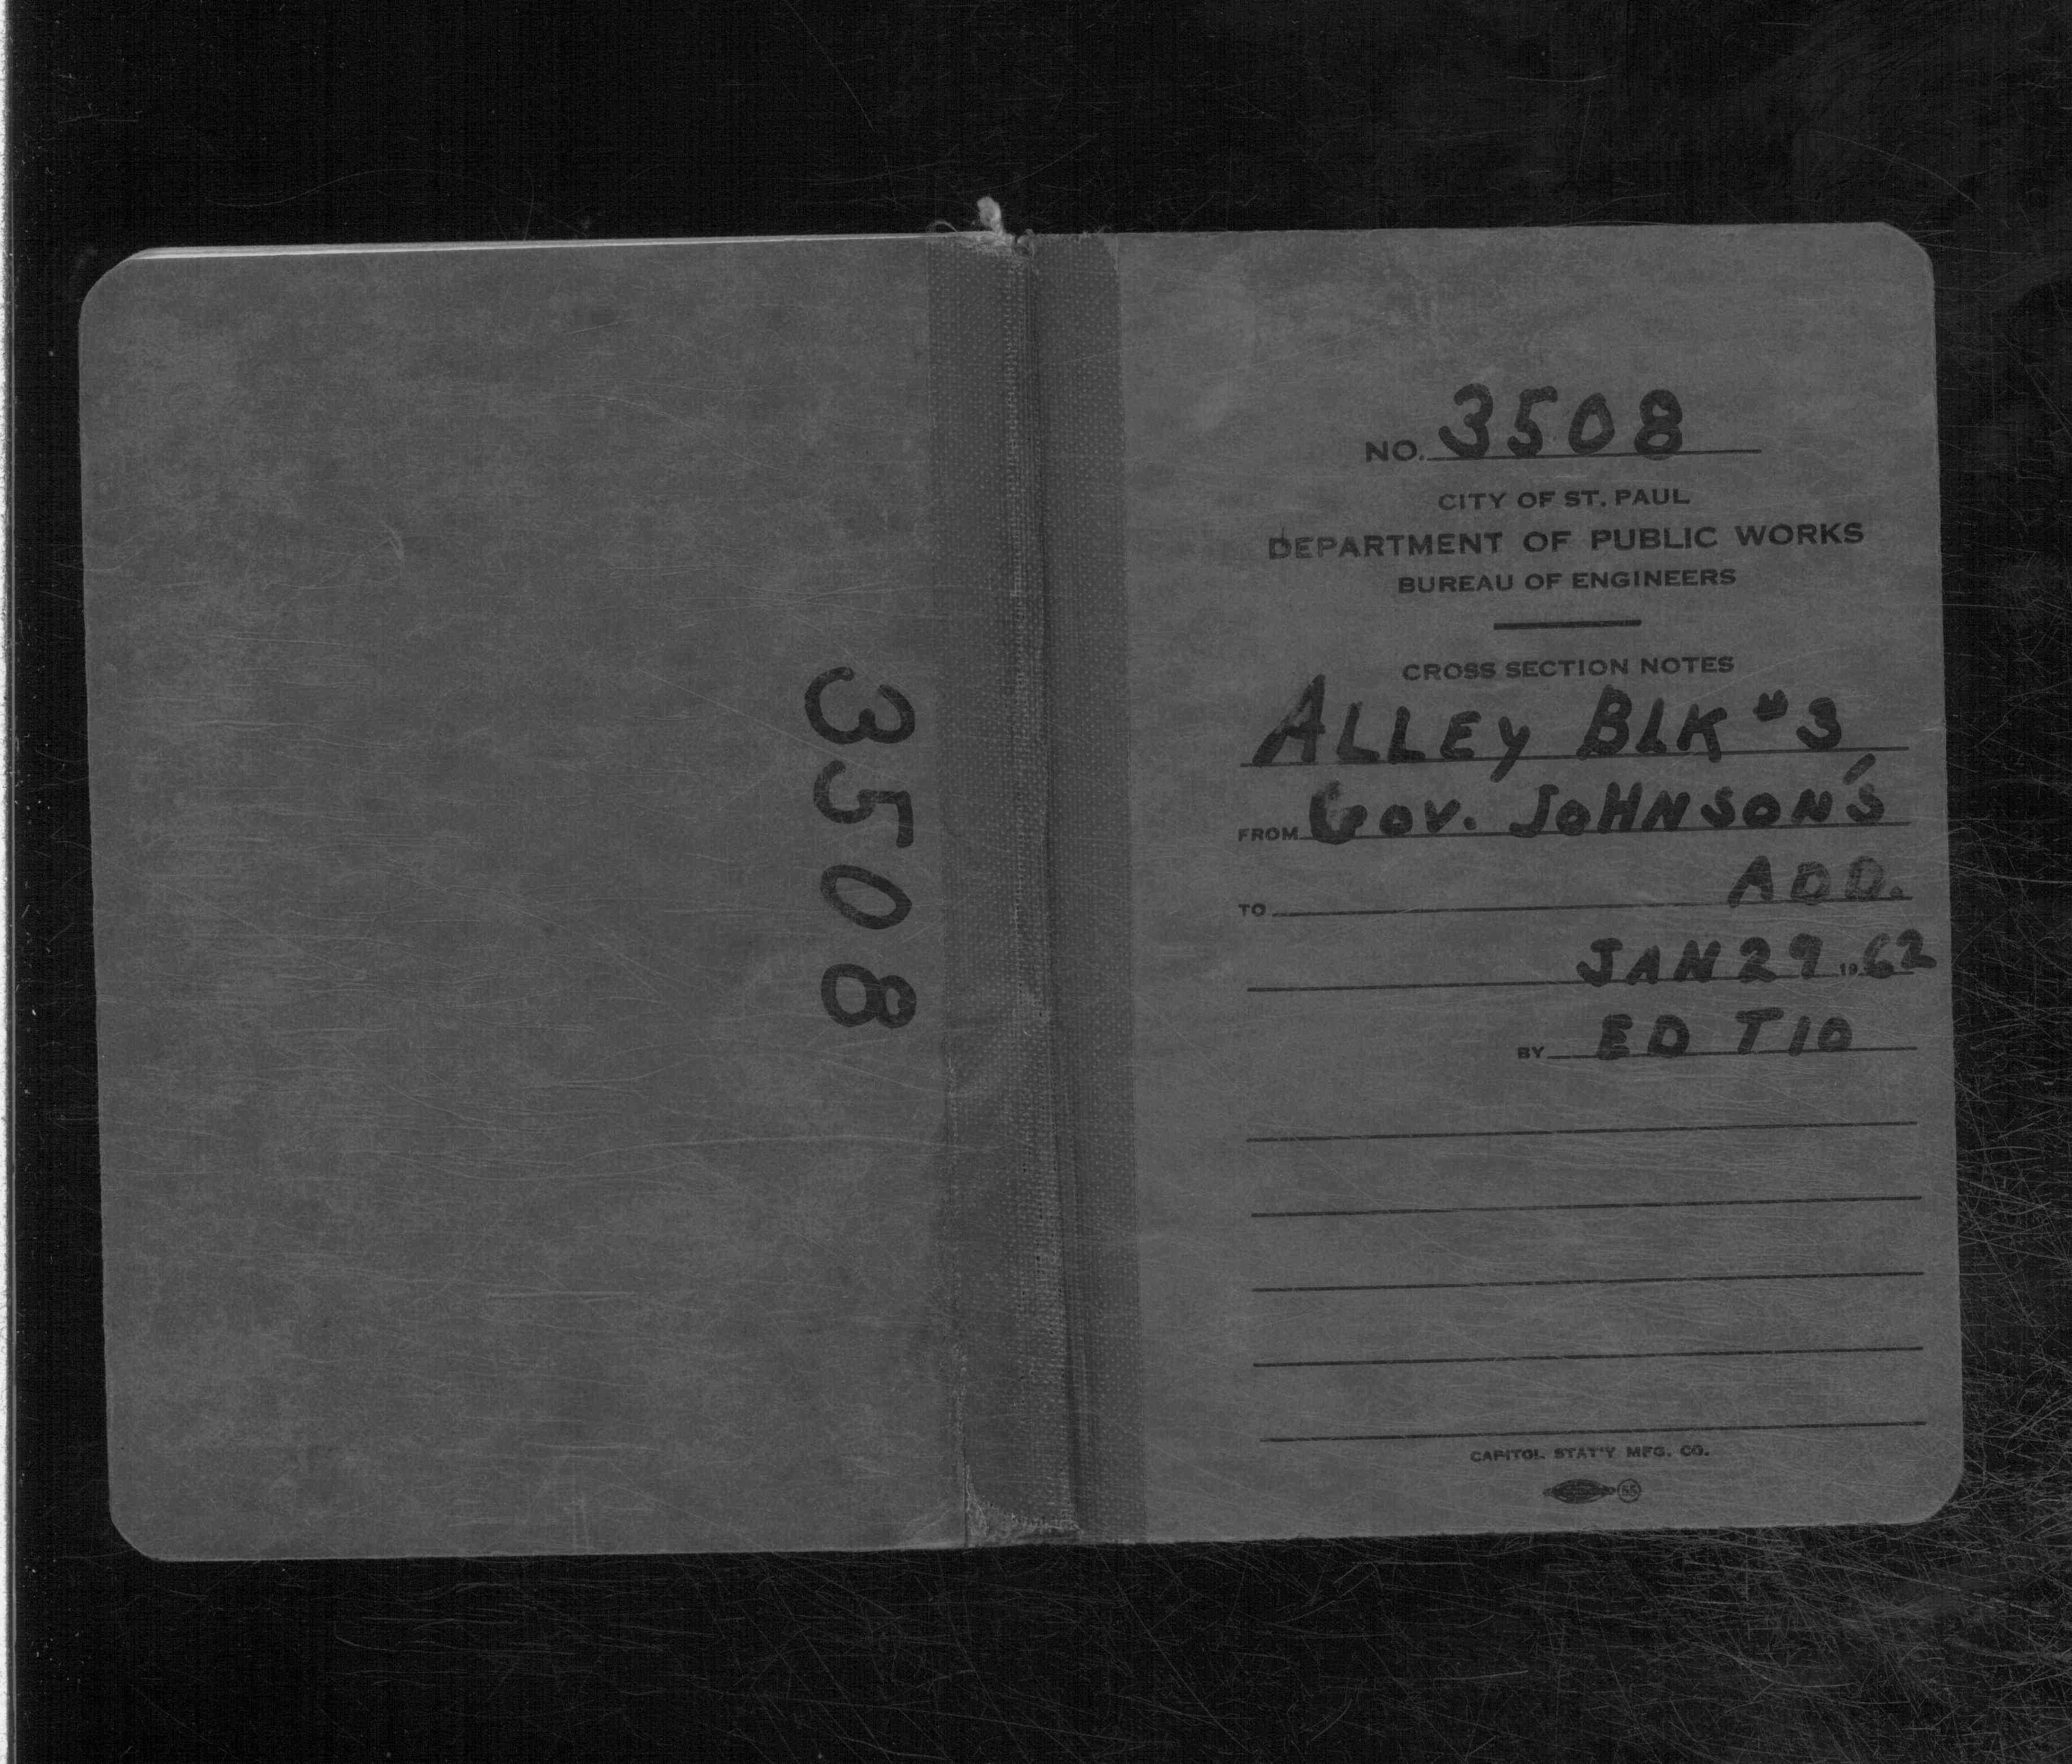 3508
NO. 3508
CITY OF ST. PAUL
DEPARTMENT OF PUBLIC WORKS
BUREAU OF ENGINEERS
CROSS SECTION NOTES
ALLEY BLK #3
FROM GOV. JOHNSON'S
TO ADD.
JAN 29 1962
BY ED TIO
CAPITOL STAT'Y MFG. CO.
55